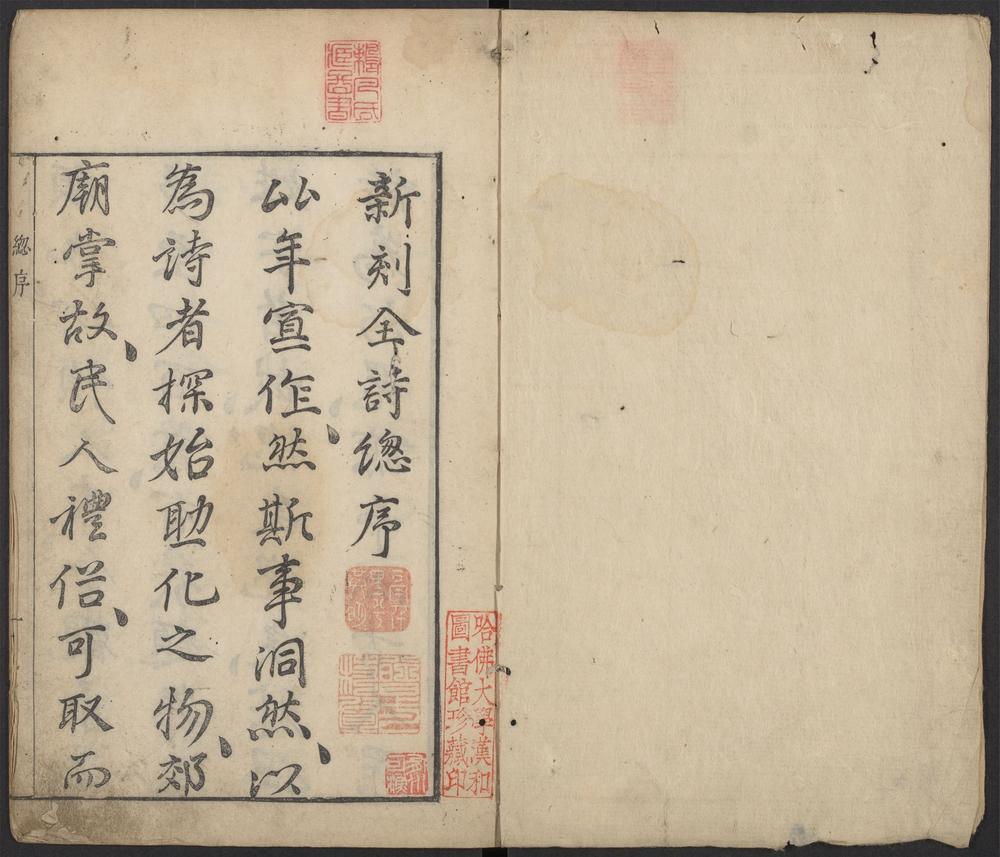 哈佛大學漢和
圖書館珍藏印
新刻全詩緫序
比年宣作、然斯事洞然、以
為詩者探始助化之物、郊
廟掌故、民人禮俗、可取而
緫序